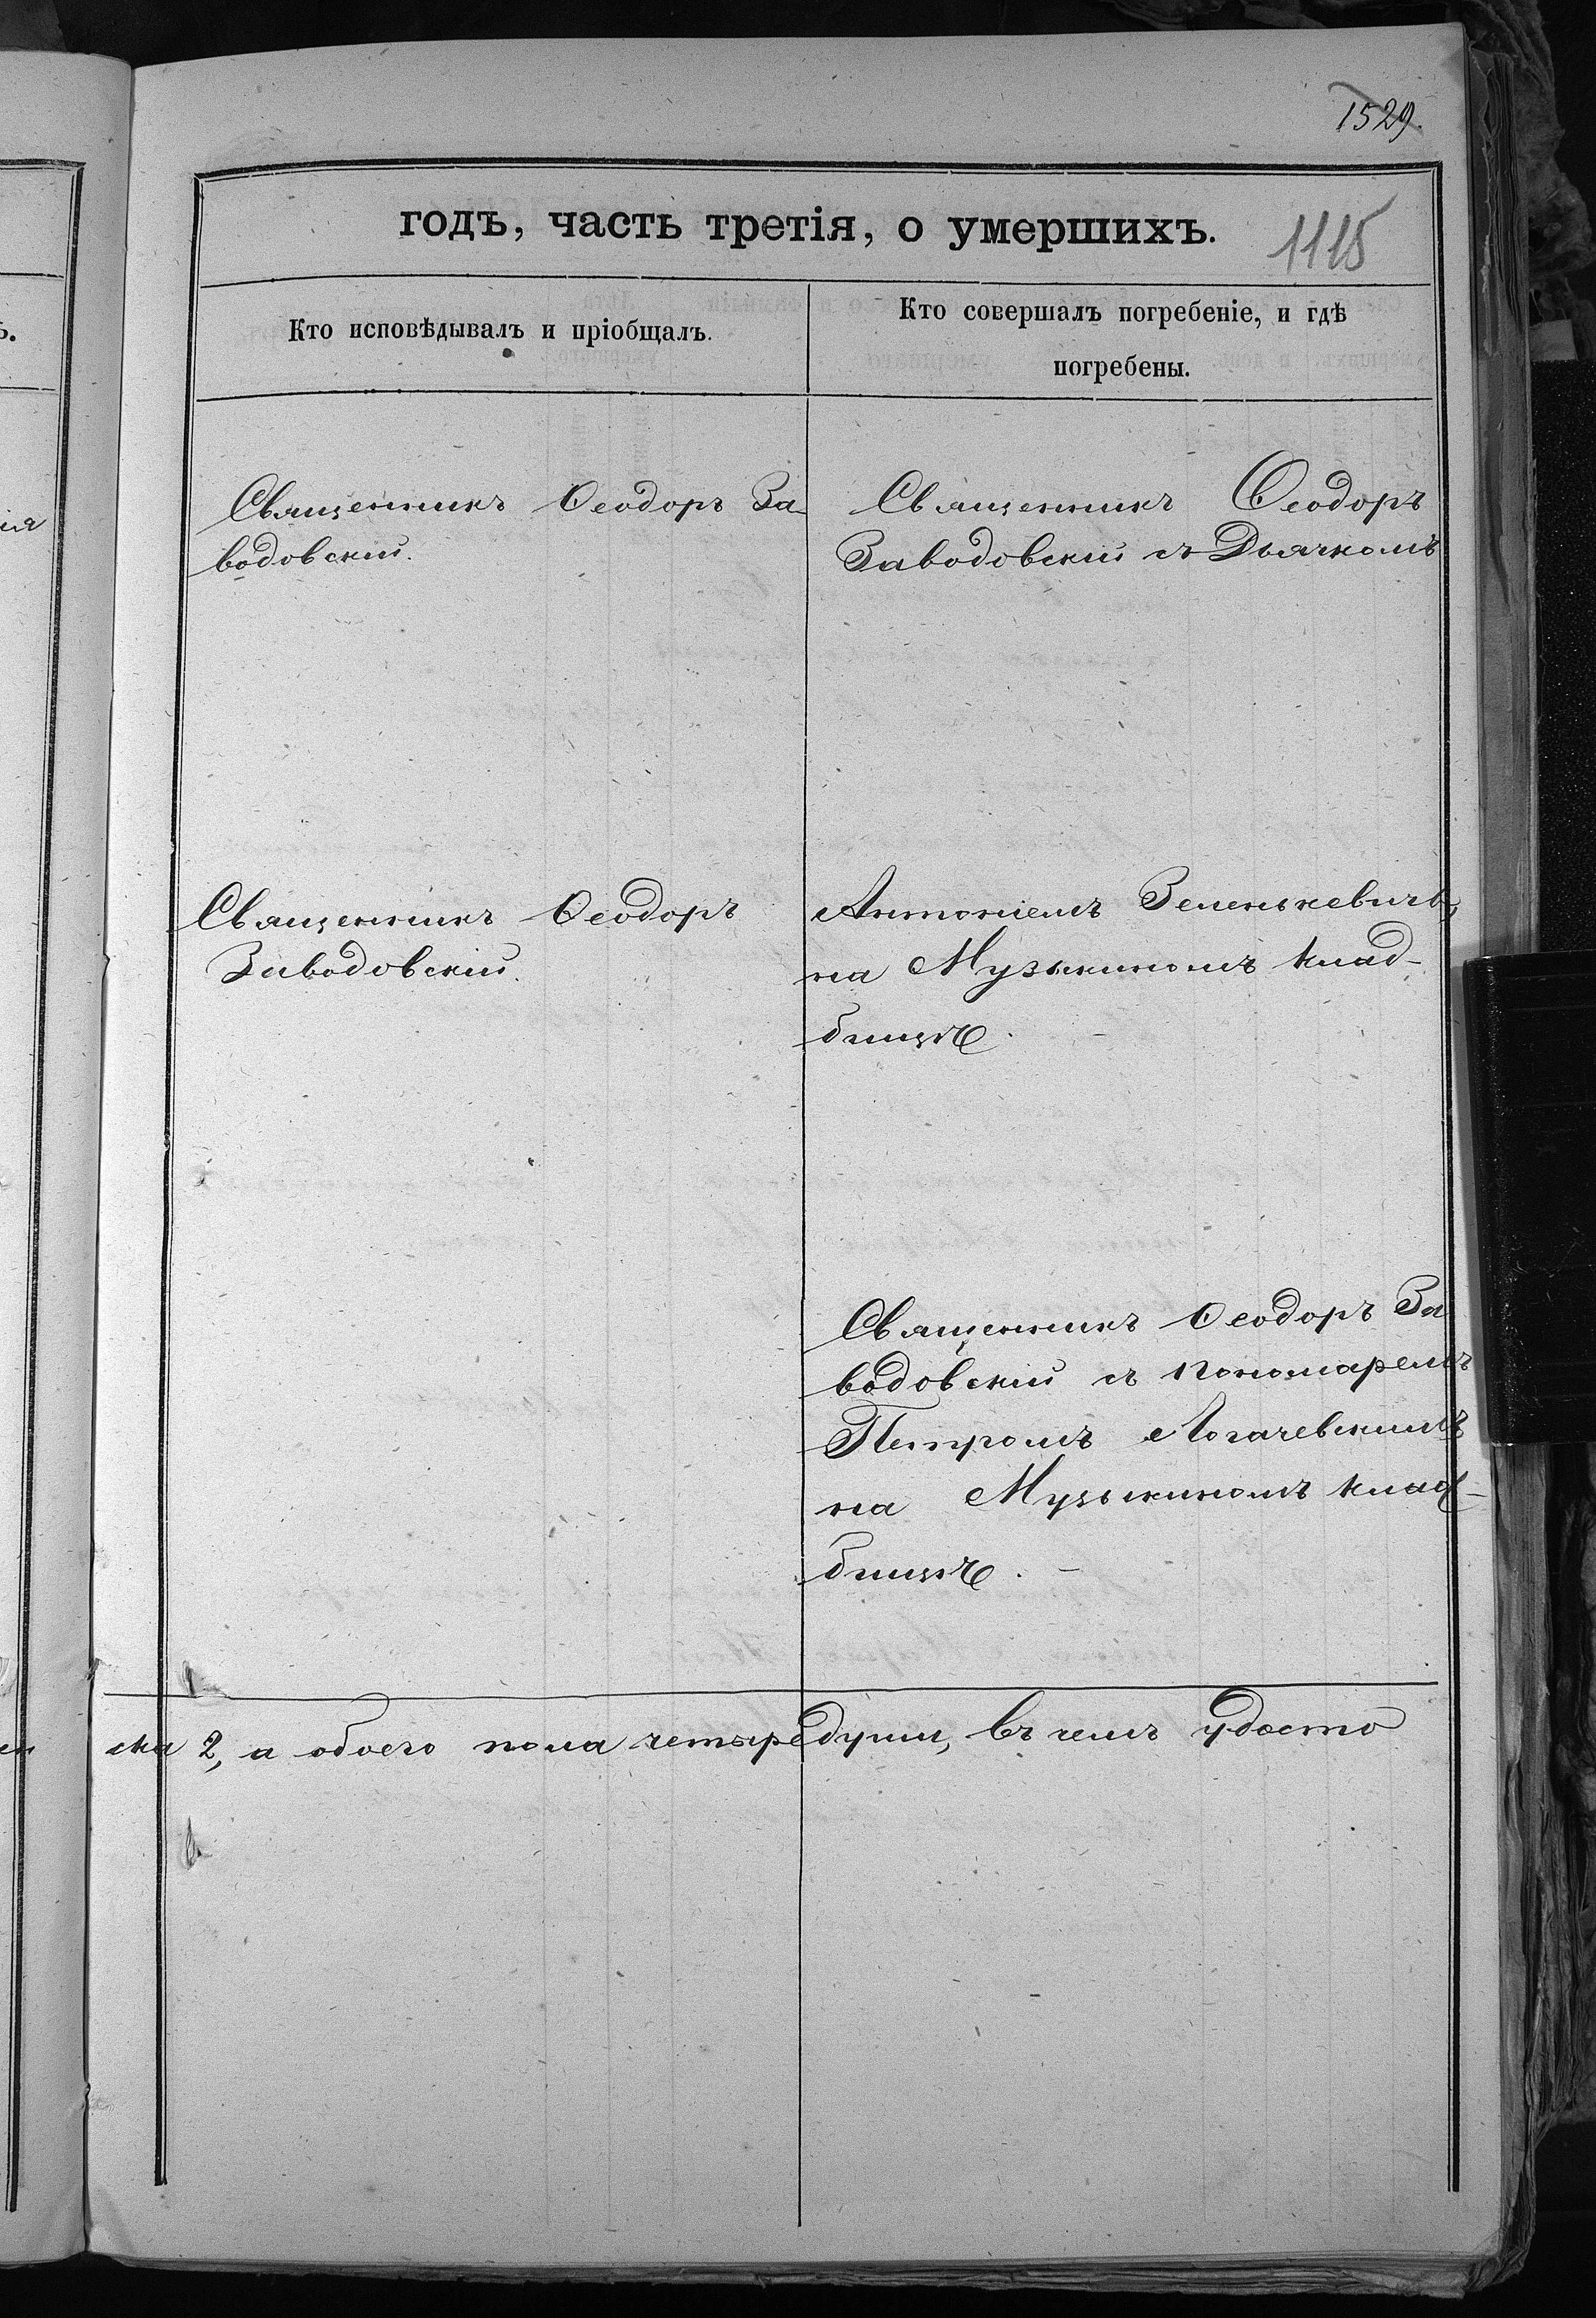 1529.
годъ, часть третія, о умершихъ.
1115
Кто исповѣдывалъ и пріобщалъ.
Кто совершалъ погребеніе, и гдѣ
погребены.
Священникъ Ѳеодоръ За-
водовскій.
Священникъ Ѳеодоръ
Заводовскій съ Дьячкомъ
Священникъ Ѳеодоръ
Заводовскій.
Антоніемъ Зеленькевичъ,
на Музыкиномъ клад-
бищѣ. -
Священникъ Ѳеодоръ За
водовскій съ пономаремъ
Петромъ Логачевскимъ
на Музыкиномъ клад-
бищѣ. -
ска 2, а обоего пола четыре души, въ чемъ удосто